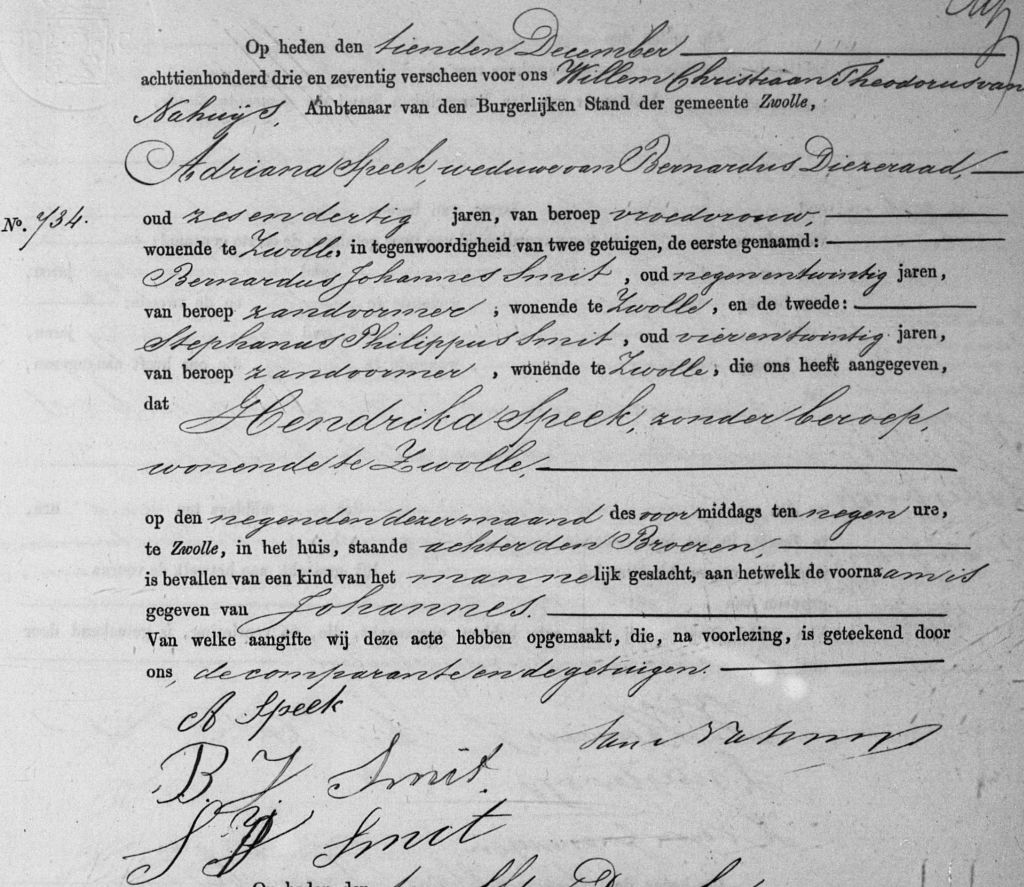 Op heden den tienden December
achttienhonderd drie en zeventig verscheen voor ons Willem Christiaan Theodorus van
Nahuijs, Ambtenaar van den Burgerlijken Stand der gemeente Zwolle,
Adriana Speek, weduwe van Bernardus Diezeraad,
No. 734.
oud zes en dertig jaren, van beroep vroedvrouw,
wonende te Zwolle, in tegenwoordigheid van twee getuigen, de eerste genaamd:
Bernardus Johannes Smit, oud negen en twintig jaren,
van beroep zandvormer, wonende te Zwolle, en de tweede:
Stephanus Philippus Smit, oud vier en twintig jaren,
van beroep zandvormer, wonende te Zwolle, die ons heeft aangegeven,
dat Hendrika Speek, zonder beroep,
wonende te Zwolle,
op den negenden dezer maand des voormiddags ten negen ure,
te Zwolle, in het huis, staande achter den Broeren,
is bevallen van een kind van het mannelijk geslacht, aan hetwelk de voornaam is
gegeven van Johannes.
Van welke aangifte wij deze acte hebben opgemaakt, die, na voorlezing, is geteekend door
ons, de comparante en de getuigen.
A Speek
van Nahuys
B. J Smit.
S P Smit
Op heden den